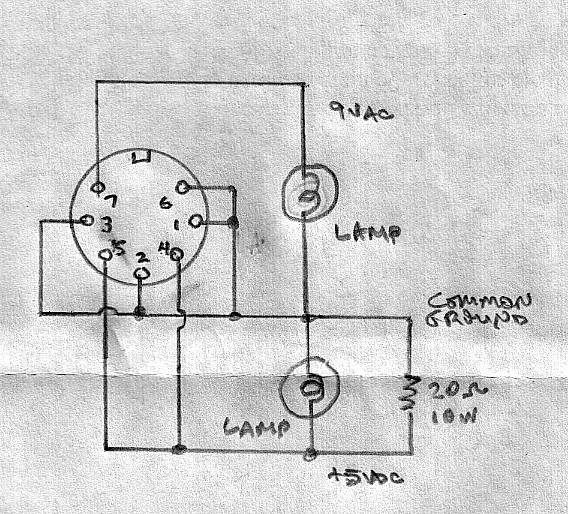 9VAC
7
6
3
1
5
2
4
LAMP
COMMON
GROUND
20Ω
10W
LAMP
+5VDC